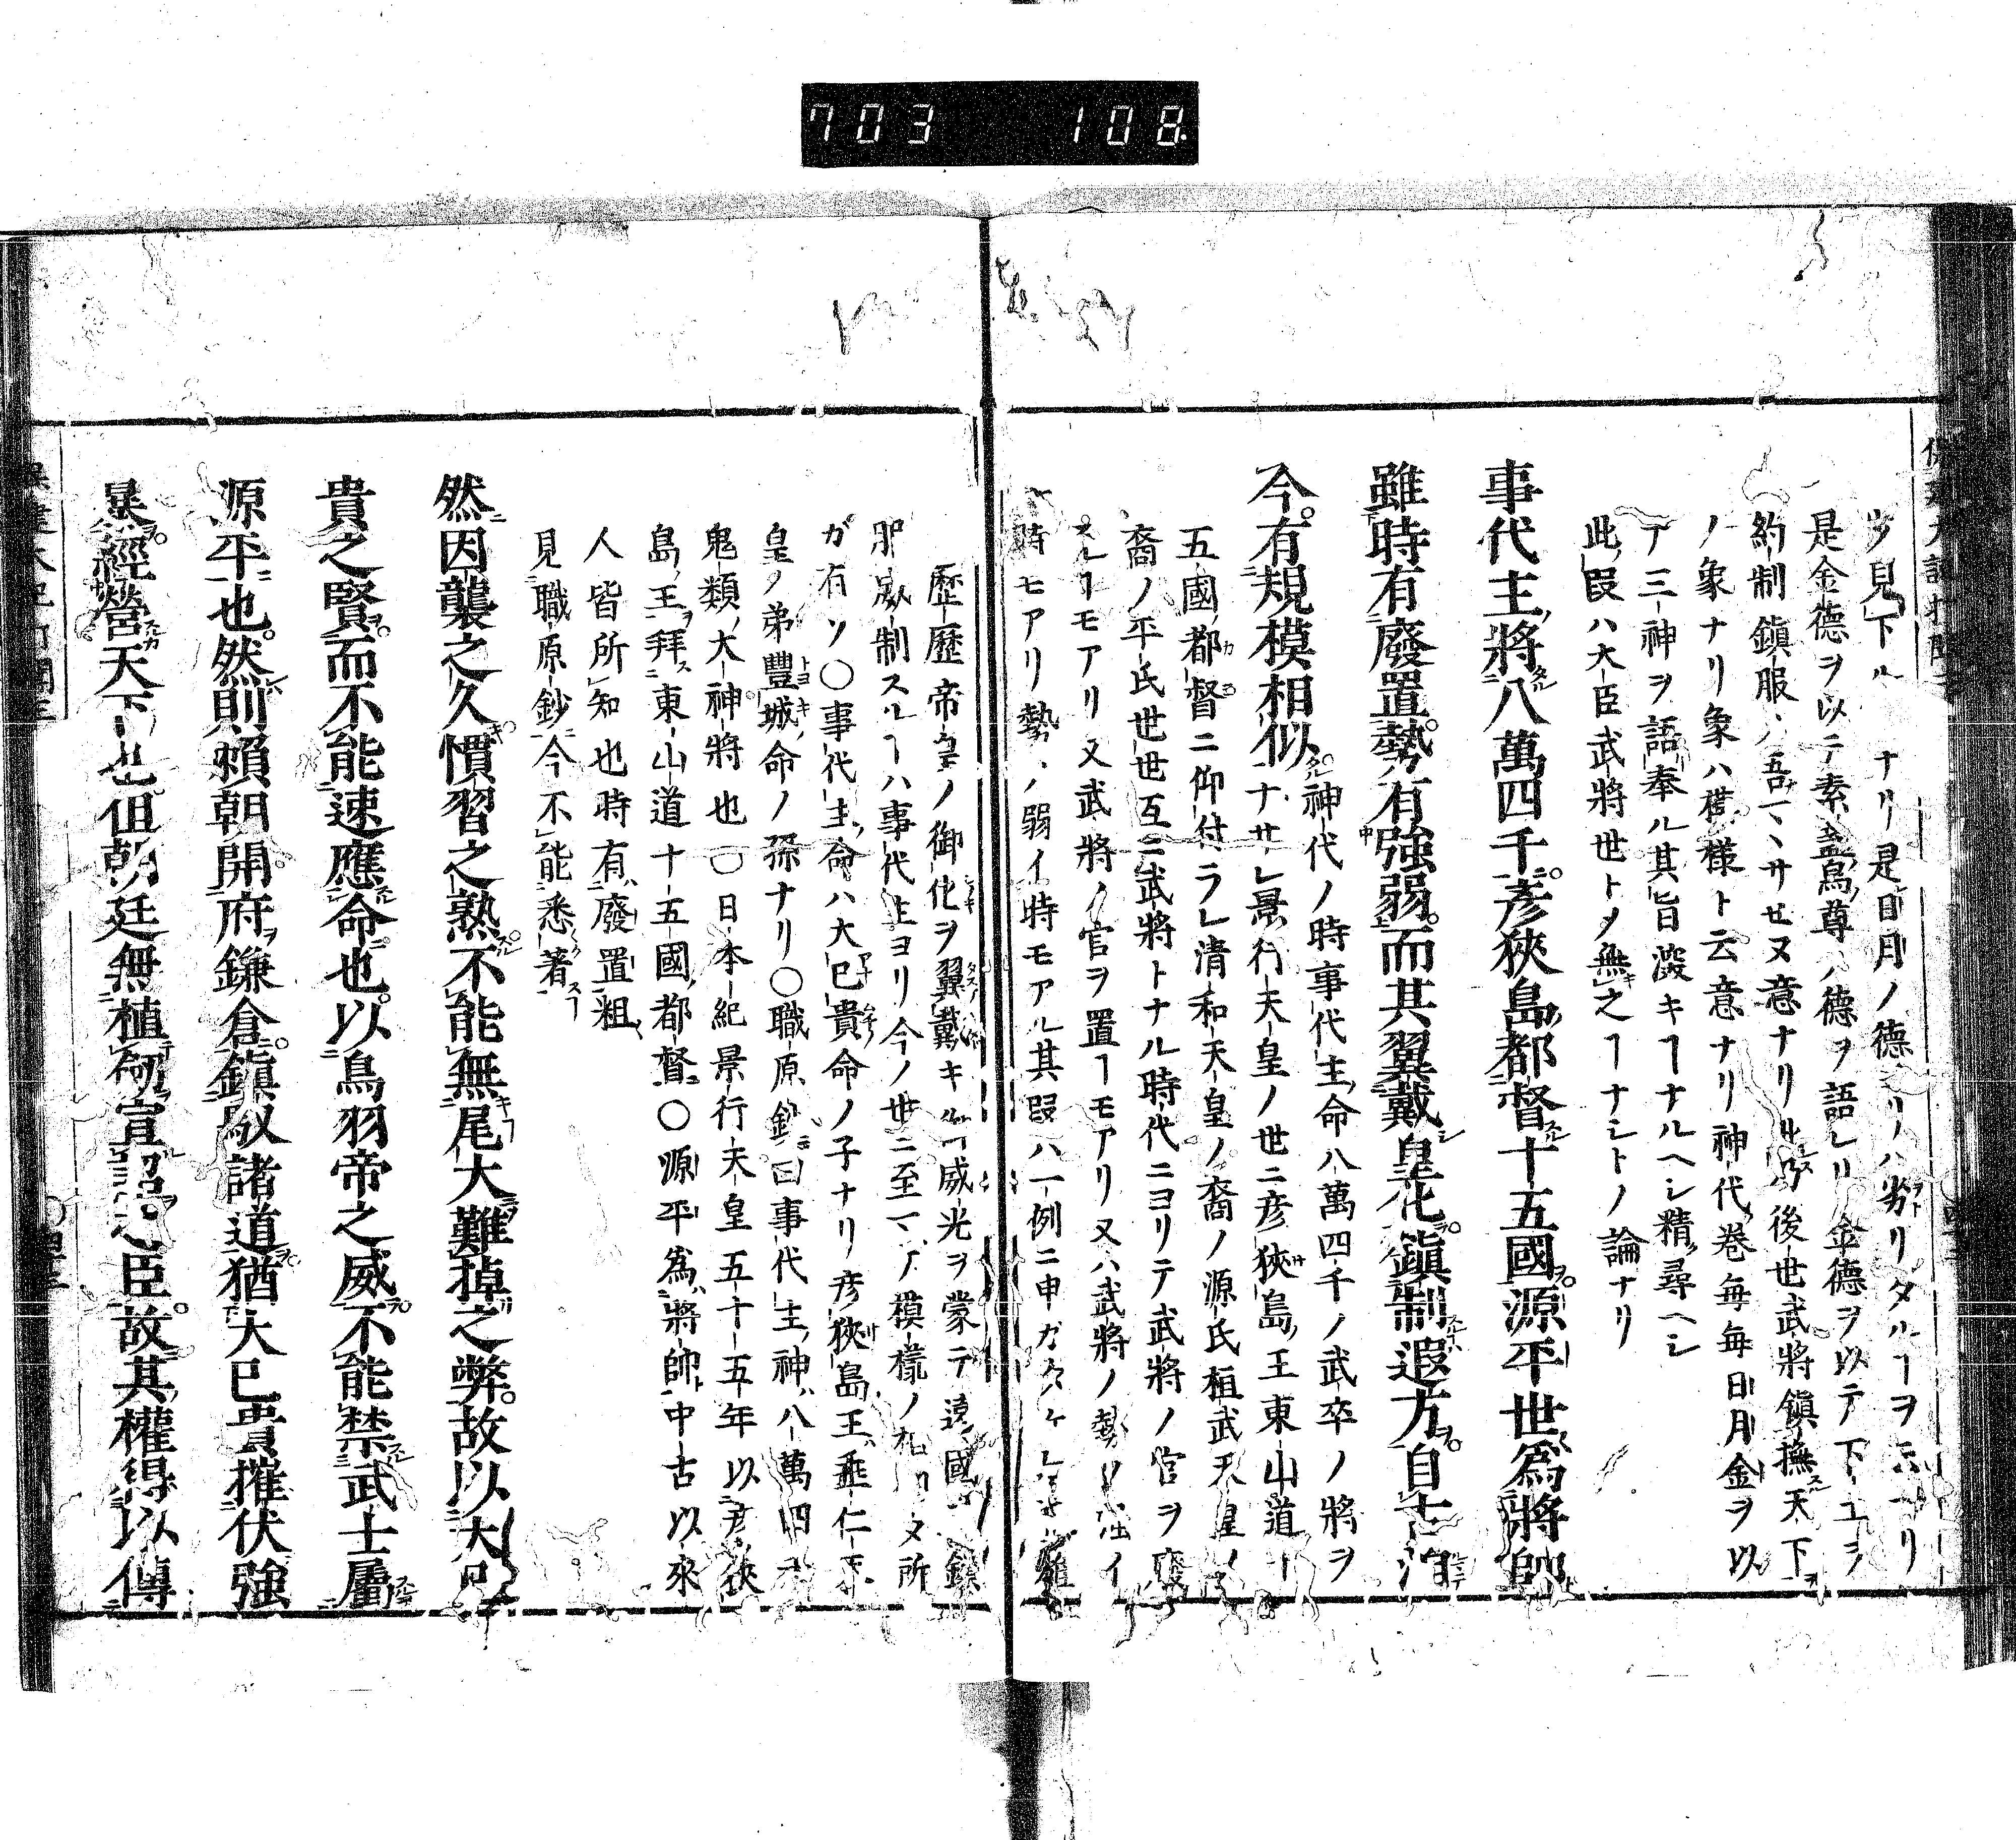 703 108
少兒下ルナリ是日月ノ德ヨリハ劣リタルヿヲ云ヘリ
是金德ヲ以テ素盞烏尊ノ德ヲ語レリ金德ヲ以テ下土ヲ
約制鎭服
後世武將鎭撫天下ヲ
ノ象ナリ象ハ模様ト云意ナリ神代巻毎毎日月金ヲ以
テ三神ヲ語奉ル其旨深キヿナルヘシ精尋ヘシ
此段ハ大臣武將世トメ無之ヿナシトノ論ナリ
事代主將八萬四千彥狹島都督十五國源平世爲將帥
雖時有廢置勢有強弱而其翼戴皇化鎭制遐方自古洎
今有規模相似神代ノ時事代主命八萬四千ノ武卒ノ將ヲ
ナサレ景行天皇ノ世ニ彦狹島王東山道十
五國都督ニ仰付ラレ清和天皇ノ裔ノ源氏桓武天皇ノ
裔ノ平氏世世互ニ武將トナル時代ニヨリテ武將ノ官ヲ廢
スルヿモアリ又武將ノ官ヲ置ヿモアリ又ハ武將ノ勢ノ強イ
時モアリ勢ノ弱イ時モアル其段ハ一例ニ申ガタケレ𪜈雖
歷歷帝皇ノ御化ヲ翼戴キ威光ヲ蒙テ遠國ヲ鎭
邪威制スルヿハ事代主ヨリ今ノ世ニ至マデ模様ノ相似タ所
ガ有ソ○事代主命ハ大己貴命ノ子ナリ彦狹島王ハ垂仁天
皇ノ弟豐城命ノ孫ナリ○職原鈔曰事代主神ハ八萬四千
鬼類大神將也○日本紀景行天皇五十五年以彦狹
島王拜東山道十五國都督○源平爲將帥中古以來
人皆所知也時有廢置粗
見職原鈔今不能悉著
然因襲之久慣習之熟不能無尾大難掉之弊故以大己
貴之賢而不能速應命也以鳥羽帝之威不能禁武士屬
源平也然則賴朝開府鎌倉鎭馭諸道猶大己貴摧伏強
暴經營天下也但朝廷無植稱宣忠臣故其權得以傳